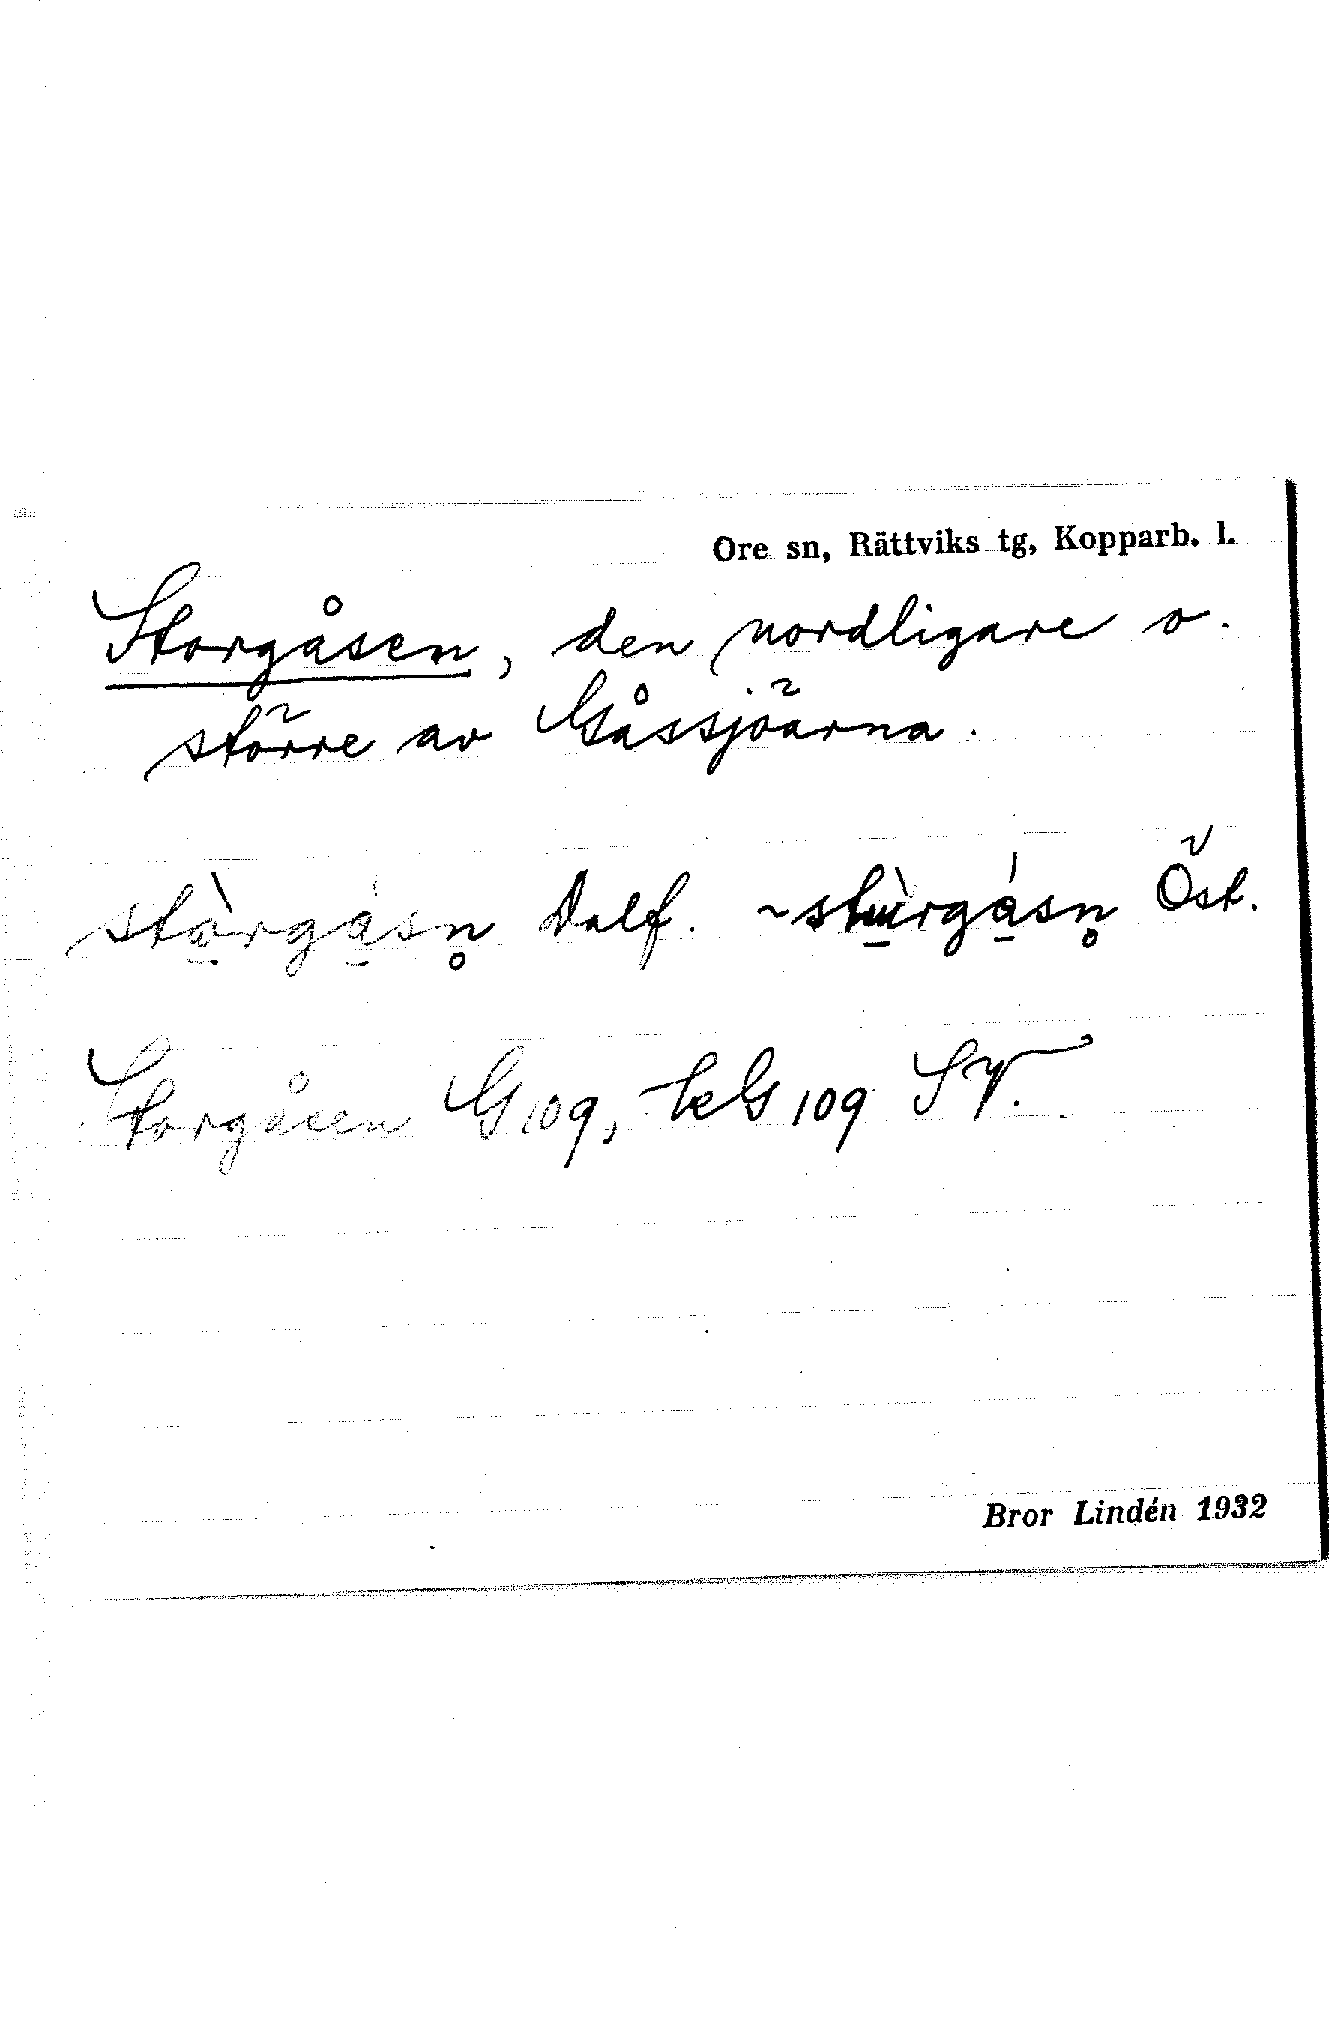 Ore sn, Rättviks tg, Kopparb. l.
Storgåsen, den nordligare o.
större av Gåssjöarna.
stòrgásn̥ Dalf. ~ stùrgásn̥ Öst.
Storgåsen G 109, G 109 SV.
Bror Lindén 1932